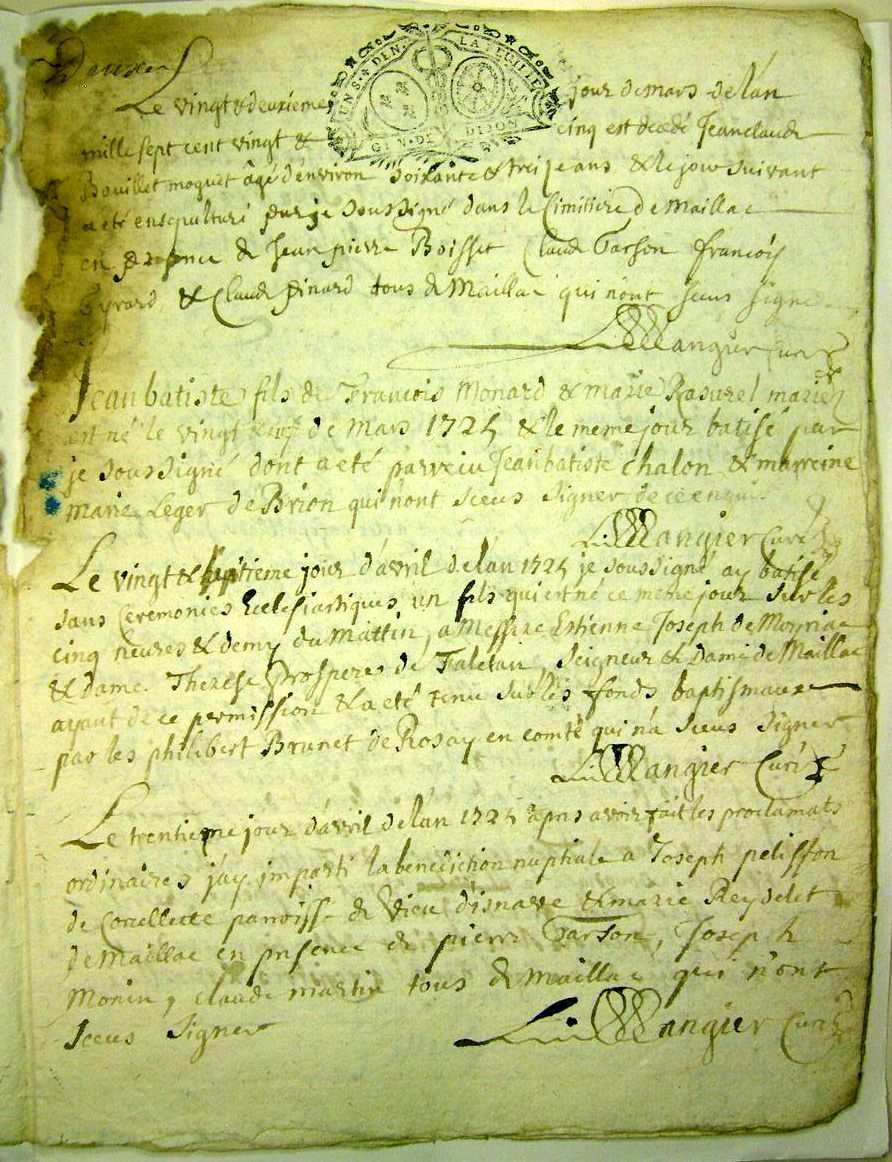 UN S. 4 DEN. LA FEUILLE
GEN. DE DIJON
Le vingt & deuxieme jour de mars de l'an
mille sept cent vingt & cinq est decedé Jeanclaude
Bouillet moquet âgé d'environ soixante & treize ans & le jour suivant
a eté ensepulturé par je soussigné dans le Cimitiere de Maillac
en presence de Jean pierre Boisset Claude Tarson francois
& Claude pinard tous de Maillac qui n'ont sceus signe
Mangier Curé
Jean batiste fils de Francois Monard & marie Rasurel mariez
est né le vingt & de Mars 1725 & le meme jour batisé par
je soussigné dont a eté parrein Jeanbatiste chalon & marreine
marie Leger de Brion qui n'ont sceus signer de ce enquis
Mangier Curé
Le vingt & septieme jour d'avril de lan 1725 je soussigné ay batisé
sans Ceremonies Ecclesiastiques un fils qui est né ce meme jour sur les
cinq heures & demy du Mattin, a Messire Estienne Joseph de Moyriac
& dame Therese prosperes de Faletan, Seigneur & Dame de Maillac
ayant de ce permission & a eté tenu sur les fonds baptismaux
par les philibert Brunet de Rosay en comté qui n'a sceus signer
Mangier Curé
Le trentieme jour d'avril de lan 1725 apres avoir fait les proclamats
ordinaires j'ay imparti la benediction nuptiale a Joseph pelisson
de Corcellette parroisse de Vieu d'isnave & marie Reydelet
de Maillac en presence de pierre Tarson, Joseph
Monin, claude martin tous de Maillac qui n'ont
sceus signer Mangier Curé